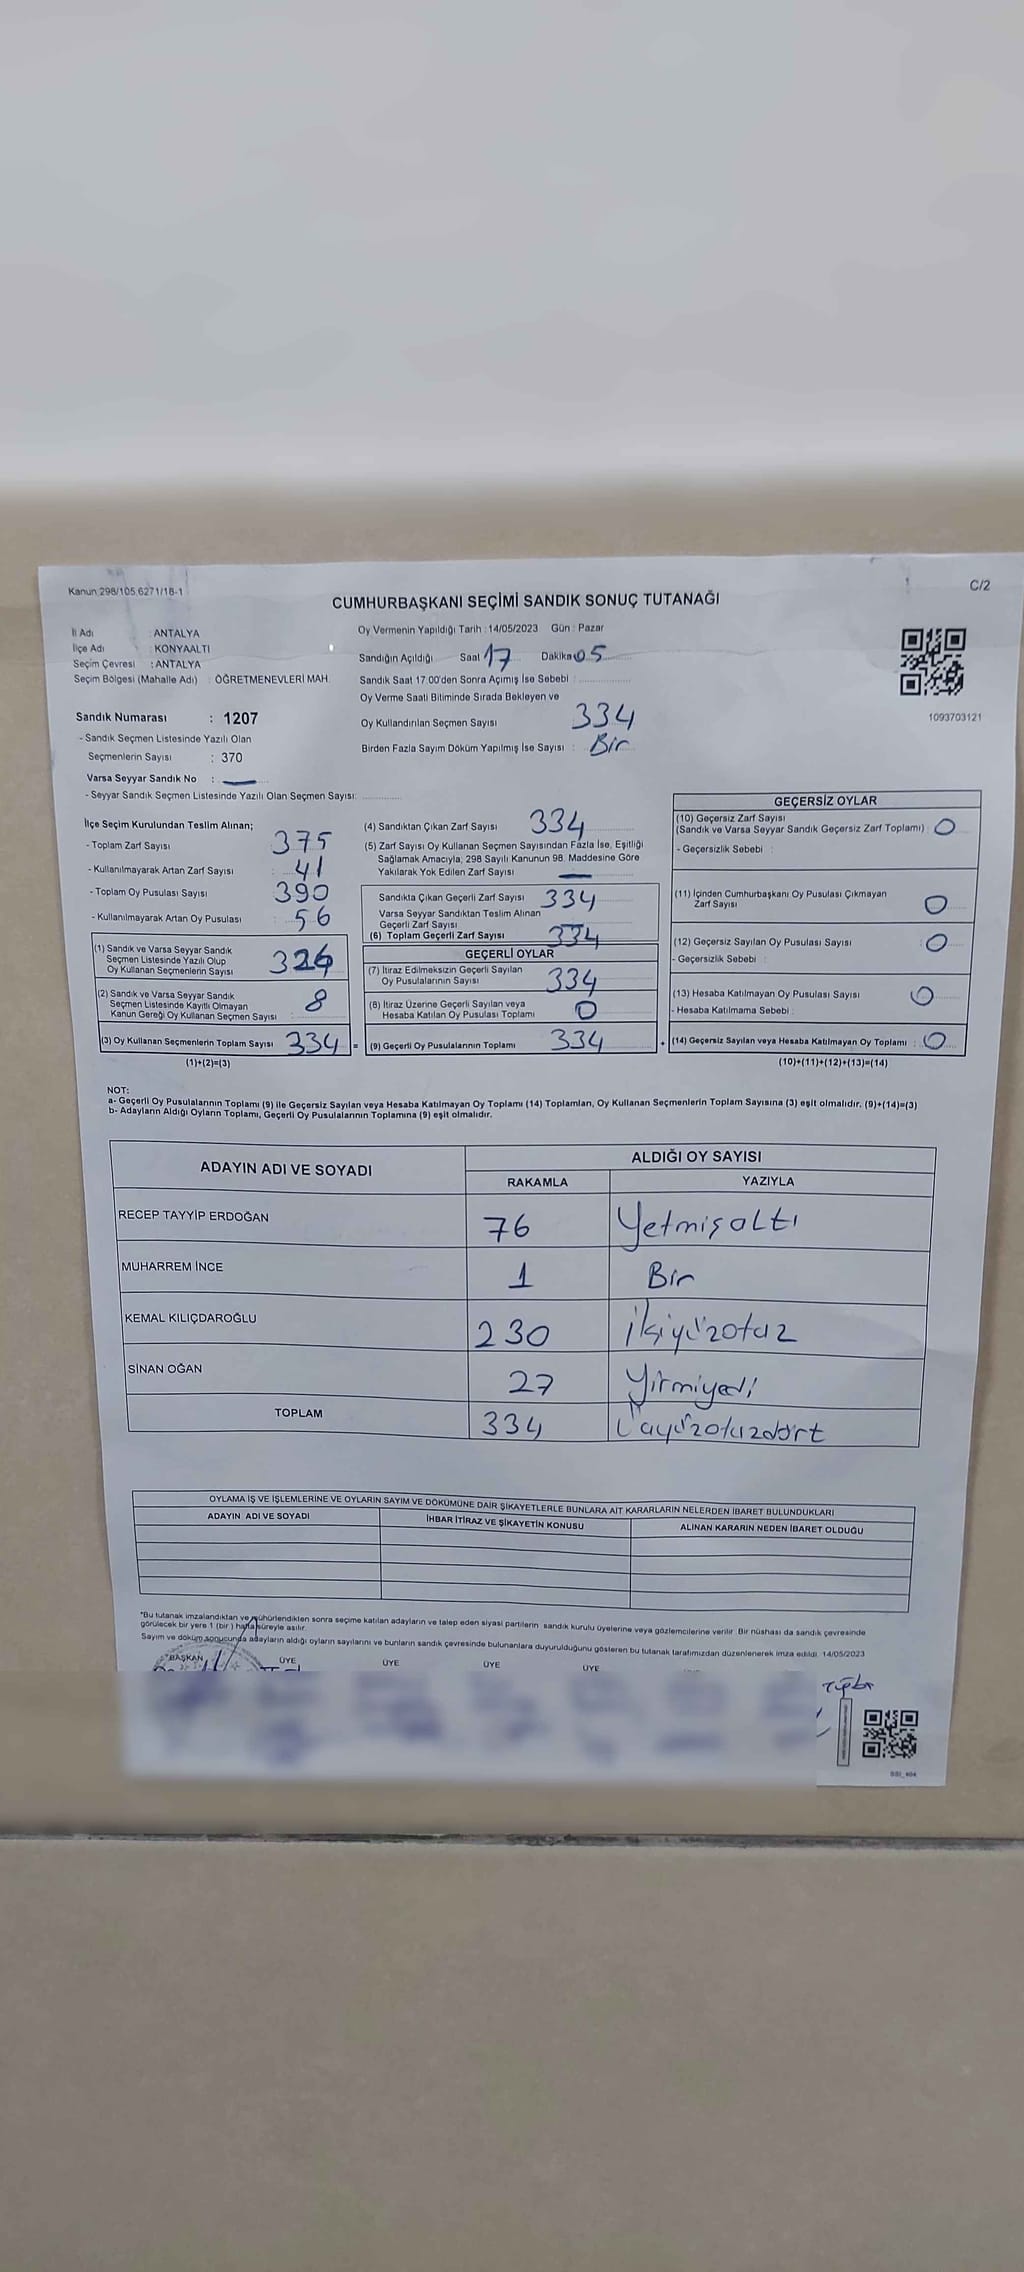 Kanun 298/105,6271/18-1
C/2
CUMHURBAŞKANI SEÇİMİ SANDIK SONUÇ TUTANAĞI
İl Adı : ANTALYA
İlçe Adı : KONYAALTI
Seçim Çevresi : ANTALYA
Seçim Bölgesi (Mahalle Adı) : ÖĞRETMENEVLERİ MAH.
Sandık Numarası : 1207
- Sandık Seçmen Listesinde Yazılı Olan
Seçmenlerin Sayısı : 370
Varsa Seyyar Sandık No : —
- Seyyar Sandık Seçmen Listesinde Yazılı Olan Seçmen Sayısı:
Oy Vermenin Yapıldığı Tarih : 14/05/2023 Gün : Pazar
Sandığın Açıldığı Saat 17 Dakika 05
Sandık Saat 17:00'den Sonra Açımış İse Sebebi :
Oy Verme Saati Bitiminde Sırada Bekleyen ve
Oy Kullandırılan Seçmen Sayısı 334
Birden Fazla Sayım Döküm Yapılmış İse Sayısı : Bir
1093703121
İlçe Seçim Kurulundan Teslim Alınan;
- Toplam Zarf Sayısı : 375
- Kullanılmayarak Artan Zarf Sayısı : 41
- Toplam Oy Pusulası Sayısı : 390
- Kullanılmayarak Artan Oy Pusulası : 56
(1) Sandık ve Varsa Seyyar Sandık
Seçmen Listesinde Yazılı Olup
Oy Kullanan Seçmenlerin Sayısı 326
(2) Sandık ve Varsa Seyyar Sandık
Seçmen Listesinde Kayıtlı Olmayan
Kanun Gereği Oy Kullanan Seçmen Sayısı : 8
(3) Oy Kullanan Seçmenlerin Toplam Sayısı 334
(1)+(2)=(3)
(4) Sandıktan Çıkan Zarf Sayısı 334
(5) Zarf Sayısı Oy Kullanan Seçmen Sayısından Fazla İse, Eşitliği
Sağlamak Amacıyla; 298 Sayılı Kanunun 98. Maddesine Göre
Yakılarak Yok Edilen Zarf Sayısı —
Sandıkta Çıkan Geçerli Zarf Sayısı 334
Varsa Seyyar Sandıktan Teslim Alınan
Geçerli Zarf Sayısı
(6) Toplam Geçerli Zarf Sayısı 334
GEÇERLİ OYLAR
(7) İtiraz Edilmeksizin Geçerli Sayılan
Oy Pusulalarının Sayısı 334
(8) İtiraz Üzerine Geçerli Sayılan veya
Hesaba Katılan Oy Pusulası Toplamı 0
= (9) Geçerli Oy Pusulalarının Toplamı 334
GEÇERSİZ OYLAR
(10) Geçersiz Zarf Sayısı
(Sandık ve Varsa Seyyar Sandık Geçersiz Zarf Toplamı) : 0
- Geçersizlik Sebebi :
(11) İçinden Cumhurbaşkanı Oy Pusulası Çıkmayan
Zarf Sayısı 0
(12) Geçersiz Sayılan Oy Pusulası Sayısı : 0
- Geçersizlik Sebebi :
(13) Hesaba Katılmayan Oy Pusulası Sayısı : 0
- Hesaba Katılmama Sebebi :
+ (14) Geçersiz Sayılan veya Hesaba Katılmayan Oy Toplamı : 0
(10)+(11)+(12)+(13)=(14)
NOT:
a- Geçerli Oy Pusulalarının Toplamı (9) ile Geçersiz Sayılan veya Hesaba Katılmayan Oy Toplamı (14) Toplamları, Oy Kullanan Seçmenlerin Toplam Sayısına (3) eşit olmalıdır. (9)+(14)=(3)
b- Adayların Aldığı Oyların Toplamı, Geçerli Oy Pusulalarının Toplamına (9) eşit olmalıdır.
ADAYIN ADI VE SOYADI
ALDIĞI OY SAYISI
RAKAMLA YAZIYLA
RECEP TAYYİP ERDOĞAN 76 Yetmişaltı
MUHARREM İNCE 1 Bir
KEMAL KILIÇDAROĞLU 230 ikiyüzotuz
SİNAN OĞAN 27 Yirmiyedi
TOPLAM 334 Üçyüzotuzdört
OYLAMA İŞ VE İŞLEMLERİNE VE OYLARIN SAYIM VE DÖKÜMÜNE DAİR ŞİKAYETLERLE BUNLARA AİT KARARLARIN NELERDEN İBARET BULUNDUKLARI
ADAYIN ADI VE SOYADI İHBAR İTİRAZ VE ŞİKAYETİN KONUSU ALINAN KARARIN NEDEN İBARET OLDUĞU
*Bu tutanak imzalandıktan ve mühürlendikten sonra seçime katılan adayların ve talep eden siyasi partilerin sandık kurulu üyelerine veya gözlemcilerine verilir. Bir nüshası da sandık çevresinde
görülecek bir yere 1 (bir) hafta süreyle asılır.
Sayım ve döküm sonucunda adayların aldığı oyların sayılarını ve bunların sandık çevresinde bulunanlara duyurulduğunu gösteren bu tutanak tarafımızdan düzenlenerek imza edildi. 14/05/2023
BAŞKAN ÜYE ÜYE ÜYE ÜYE